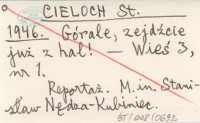 CIELOCH St.
1946. Górale, zejdźcie
już z hal! – Wieś 3,
nr 1.
Reportaż. M.in. Stani-
sław Nędza-Kubiniec.
BJ/008/0692